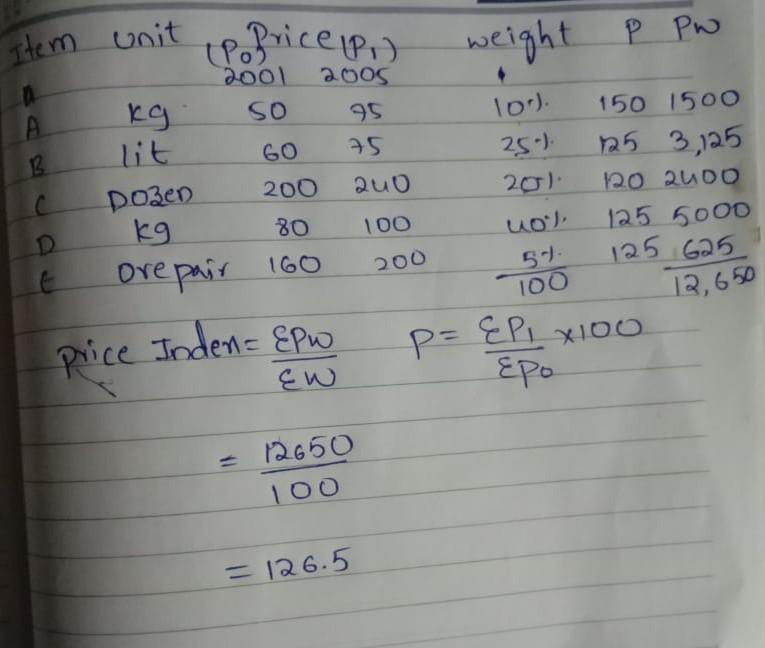 Item Unit Price weight P PW
(P₀) (P₁)
2001 2005
A kg 50 75 10% 150 1500
B lit 60 75 25% 125 3,125
C Dozen 200 240 20% 120 2400
D kg 80 100 40% 125 5000
E one pair 160 200 5% 125 625
100 12,650
Price Index = ΣPW / ΣW P = ΣP₁ / ΣP₀ ×100
= 12650 / 100
= 126.5